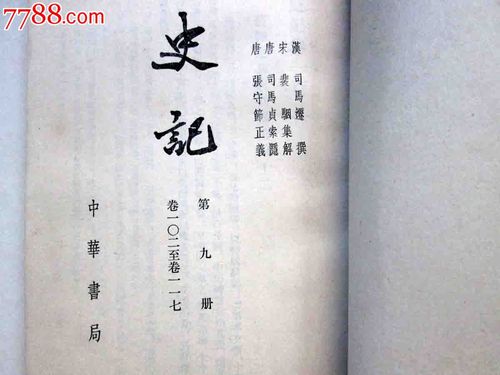 7788.com
漢 司馬遷 撰
宋 裴駰集解
唐 司馬貞索隱
唐 張守節正義
史記
第九册
卷一〇二至卷一一七
中華書局